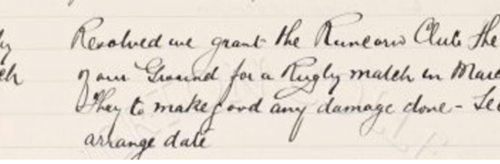 Resolved we grant the Runcorn Club the
of our Ground for a Rugby match in
They to make good any damage done -
arrange date